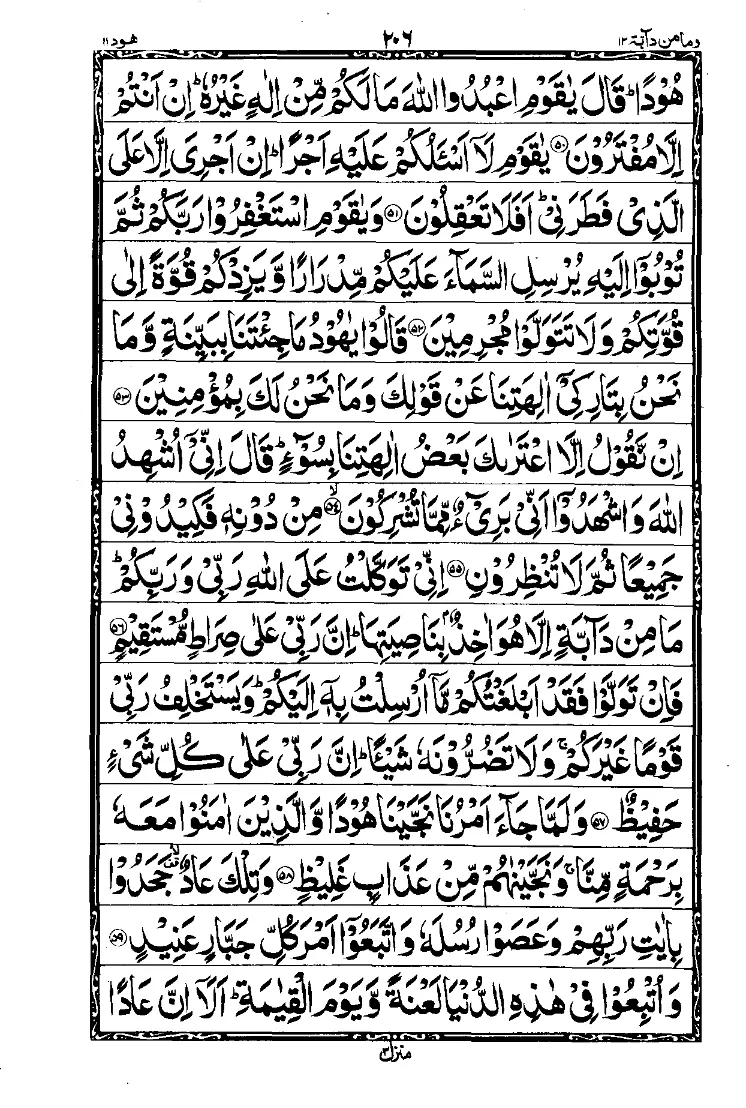 ومامن دآبۃ ١٢ ٢٠٦ ھود ١١
هُوۡدًا ؕ قَالَ يٰقَوۡمِ اعۡبُدُوا اللّٰهَ مَا لَـكُمۡ مِّنۡ اِلٰهٍ غَيۡرُهٗ ؕ اِنۡ اَنۡتُمۡ
اِلَّا مُفۡتَرُوۡنَ ﴿۵۰﴾ يٰقَوۡمِ لَاۤ اَسۡـَٔلُكُمۡ عَلَيۡهِ اَجۡرًا ؕ اِنۡ اَجۡرِىَ اِلَّا عَلَى
الَّذِىۡ فَطَرَنِىۡ ؕ اَفَلَا تَعۡقِلُوۡنَ ﴿۵۱﴾ وَيٰقَوۡمِ اسۡتَغۡفِرُوۡا رَبَّكُمۡ ثُمَّ
تُوۡبُوۡۤا اِلَيۡهِ يُرۡسِلِ السَّمَآءَ عَلَيۡكُمۡ مِّدۡرَارًا وَّيَزِدۡكُمۡ قُوَّةً اِلٰى
قُوَّتِكُمۡ وَلَا تَتَوَلَّوۡا مُجۡرِمِيۡنَ ﴿۵۲﴾ قَالُوۡا يٰهُوۡدُ مَا جِئۡتَنَا بِبَيِّنَةٍ وَّمَا
نَحۡنُ بِتَارِكِىۡۤ اٰلِهَتِنَا عَنۡ قَوۡلِكَ وَمَا نَحۡنُ لَـكَ بِمُؤۡمِنِيۡنَ ﴿۵۳﴾
اِنۡ نَّقُوۡلُ اِلَّا اعۡتَرٰٮكَ بَعۡضُ اٰلِهَتِنَا بِسُوۡٓءٍ ؕ قَالَ اِنِّىۡۤ اُشۡهِدُ
اللّٰهَ وَاشۡهَدُوۡۤا اَنِّىۡ بَرِىۡٓءٌ مِّمَّا تُشۡرِكُوۡنَ ۙ‏﴿۵۴﴾ مِنۡ دُوۡنِهٖ فَكِيۡدُوۡنِىۡ
جَمِيۡعًا ثُمَّ لَا تُنۡظِرُوۡنِ ﴿۵۵﴾ اِنِّىۡ تَوَكَّلۡتُ عَلَى اللّٰهِ رَبِّىۡ وَرَبِّكُمۡ ؕ
مَا مِنۡ دَآبَّةٍ اِلَّا هُوَ اٰخِذٌۢ بِنَاصِيَتِهَا ؕ اِنَّ رَبِّىۡ عَلٰى صِرَاطٍ مُّسۡتَقِيۡمٍ ﴿۵۶﴾
فَاِنۡ تَوَلَّوۡا فَقَدۡ اَبۡلَغۡتُكُمۡ مَّاۤ اُرۡسِلۡتُ بِهٖۤ اِلَيۡكُمۡ ؕ وَيَسۡتَخۡلِفُ رَبِّىۡ
قَوۡمًا غَيۡرَكُمۡ ۚ وَلَا تَضُرُّوۡنَهٗ شَيۡـًٔا ؕ اِنَّ رَبِّىۡ عَلٰى كُلِّ شَىۡءٍ
حَفِيۡظٌ ﴿۵۷﴾ وَلَمَّا جَآءَ اَمۡرُنَا نَجَّيۡنَا هُوۡدًا وَّالَّذِيۡنَ اٰمَنُوۡا مَعَهٗ
بِرَحۡمَةٍ مِّنَّا ۚ وَنَجَّيۡنٰهُمۡ مِّنۡ عَذَابٍ غَلِيۡظٍ ﴿۵۸﴾ وَتِلۡكَ عَادٌ ۙ جَحَدُوۡا
بِاٰيٰتِ رَبِّهِمۡ وَعَصَوۡا رُسُلَهٗ وَاتَّبَعُوۡۤا اَمۡرَ كُلِّ جَبَّارٍ عَنِيۡدٍ ﴿۵۹﴾
وَاُتۡبِعُوۡا فِىۡ هٰذِهِ الدُّنۡيَا لَعۡنَةً وَّيَوۡمَ الۡقِيٰمَةِ ؕ اَلَاۤ اِنَّ عَادًا
منزل ٣